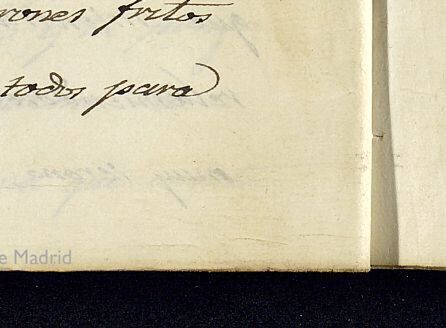 rones fritos
todos para
e Madrid